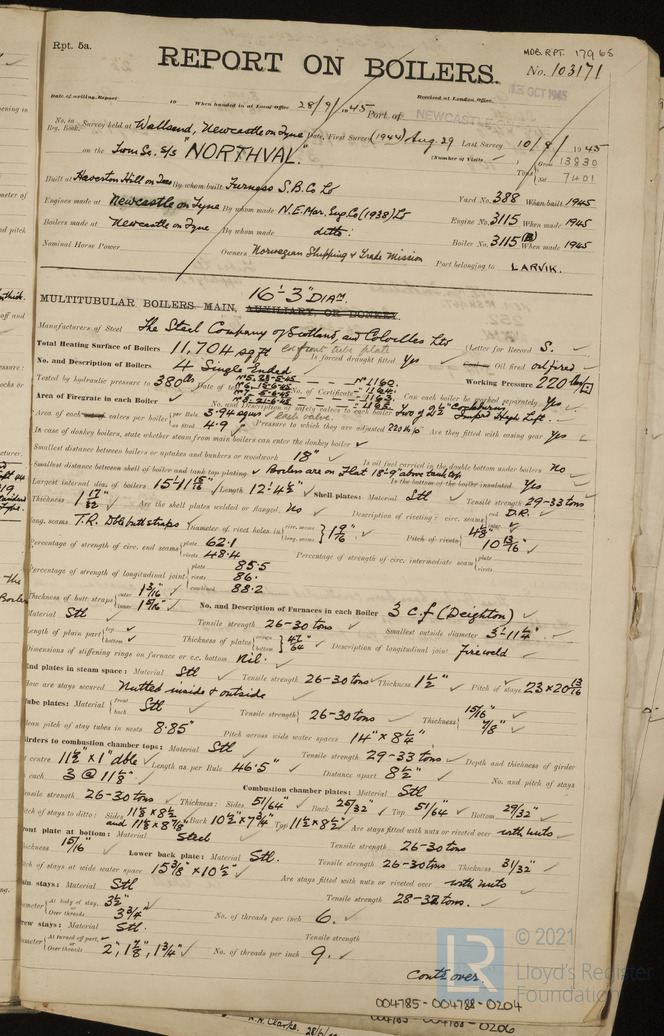 Rpt. 5a.
MDB. RPT. 17968
REPORT ON BOILERS.
No. 103171
15 OCT 1945
Date of writing Report 19 When handed in at Local Office 28/9/1945 Port of NEWCASTLE
Received at London Office
No. in Reg. Book. Survey held at Wallsend, Newcastle on Tyne Date, First Survey (1944) Aug. 29 Last Survey 10/8/1945
on the "NORTHVAL." (Number of Visits) Tons Gross 13830 Net 7401
Built at Haverton Hill on Tees By whom built Furness S.B. Co Ld Yard No. 388 When built 1945
Engines made at Newcastle on Tyne By whom made N.E. Mar. Eng. Co (1938) Ld Engine No. 3115 When made 1945
Boilers made at Newcastle on Tyne By whom made ditto Boiler No. 3115 When made 1945
Nominal Horse Power Owners Norwegian Shipping & Trade Mission Port belonging to LARVIK.
16'-3" DIAM.
MULTITUBULAR BOILERS, MAIN, AUXILIARY, OR DONKEY.
Manufacturers of Steel The Steel Company of Scotland, and Colvilles Ltd (Letter for Record S.
Total Heating Surface of Boilers 11,704 sq ft Is forced draught fitted Yes Coal or Oil fired oil fired
No. and Description of Boilers 4 Single Ended Working Pressure 220 lbs
Tested by hydraulic pressure to 380 lbs Date of test No. of Certificate Can each boiler be worked separately Yes
Area of Firegrate in each Boiler No. and Description of safety valves to each boiler Two of 2½" Cockburns Impd High Lift.
Area of each valves per boiler per Rule 3.94 as fitted 4.9 Pressure to which they are adjusted 220 Are they fitted with easing gear Yes
In case of donkey boilers, state whether steam from main boilers can enter the donkey boiler
Smallest distance between boilers or uptakes and bunkers or woodwork 18" Is oil fuel carried in the double bottom under boilers No
Smallest distance between shell of boiler and tank top plating Boilers are on Flat 18'-9" above tank top Is the bottom of the boiler insulated Yes
Largest internal dia. of boilers 15'-11 15/16" Length 12'-4½" Shell plates: Material Stl Tensile strength 29-33 tons
Thickness 1 17/32" Are the shell plates welded or flanged No Description of riveting: circ. seams end D.R.
long. seams T.R. Dble butt straps Diameter of rivet holes in circ. seams long. seams 1 9/16" Pitch of rivets 4⅛" 10 13/16"
Percentage of strength of circ. end seams plate 62.1 rivets 48.4 Percentage of strength of circ. intermediate seam plate rivets
Percentage of strength of longitudinal joint plate 85.5 rivets 86. combined 88.2
Thickness of butt straps outer 1 3/16" inner 1 5/16" No. and Description of Furnaces in each Boiler 3 c.f (Deighton)
Material Stl Tensile strength 26-30 tons Smallest outside diameter 3'-11¼"
Length of plain part top bottom Thickness of plates crown bottom 47/64" Description of longitudinal joint fireweld
Dimensions of stiffening rings on furnace or c.c. bottom Nil.
End plates in steam space: Material Stl Tensile strength 26-30 tons Thickness 1½" Pitch of stays 23 x 20 13/16
How are stays secured Nutted inside & outside
Tube plates: Material front back Stl Tensile strength 26-30 tons Thickness 15/16" 7/8"
Mean pitch of stay tubes in nests 8.85" Pitch across wide water spaces 14" x 8¼"
Girders to combustion chamber tops: Material Stl Tensile strength 29-33 tons Depth and thickness of girder
at centre 11½" x 1" dble Length as per Rule 46.5" Distance apart 8½" No. and pitch of stays
in each 3 @ 11⅛" Combustion chamber plates: Material Stl
Tensile strength 26-30 tons Thickness: Sides 51/64" Back 25/32" Top 51/64" Bottom 29/32"
Pitch of stays to ditto: Sides 11⅛ x 8½ and 11⅛ x 8⅞ Back 10½" x 7¾" Top 11½ x 8½" Are stays fitted with nuts or riveted over with nuts
Front plate at bottom: Material Steel Tensile strength 26-30 tons
Thickness 15/16" Lower back plate: Material Stl. Tensile strength 26-30 tons Thickness 31/32"
Pitch of stays at wide water space 15⅜" x 10½" Are stays fitted with nuts or riveted over with nuts
Main stays: Material Stl Tensile strength 28-32 tons.
Diameter At body of stay, 3½" Over threads 3¾" No. of threads per inch 6.
Screw stays: Material Stl. Tensile strength
Diameter At turned off part, Over threads 2", 1⅞", 1¾" No. of threads per inch 9.
Contd over.
© 2021
Lloyd's Register
Foundation
004785-004788-0204